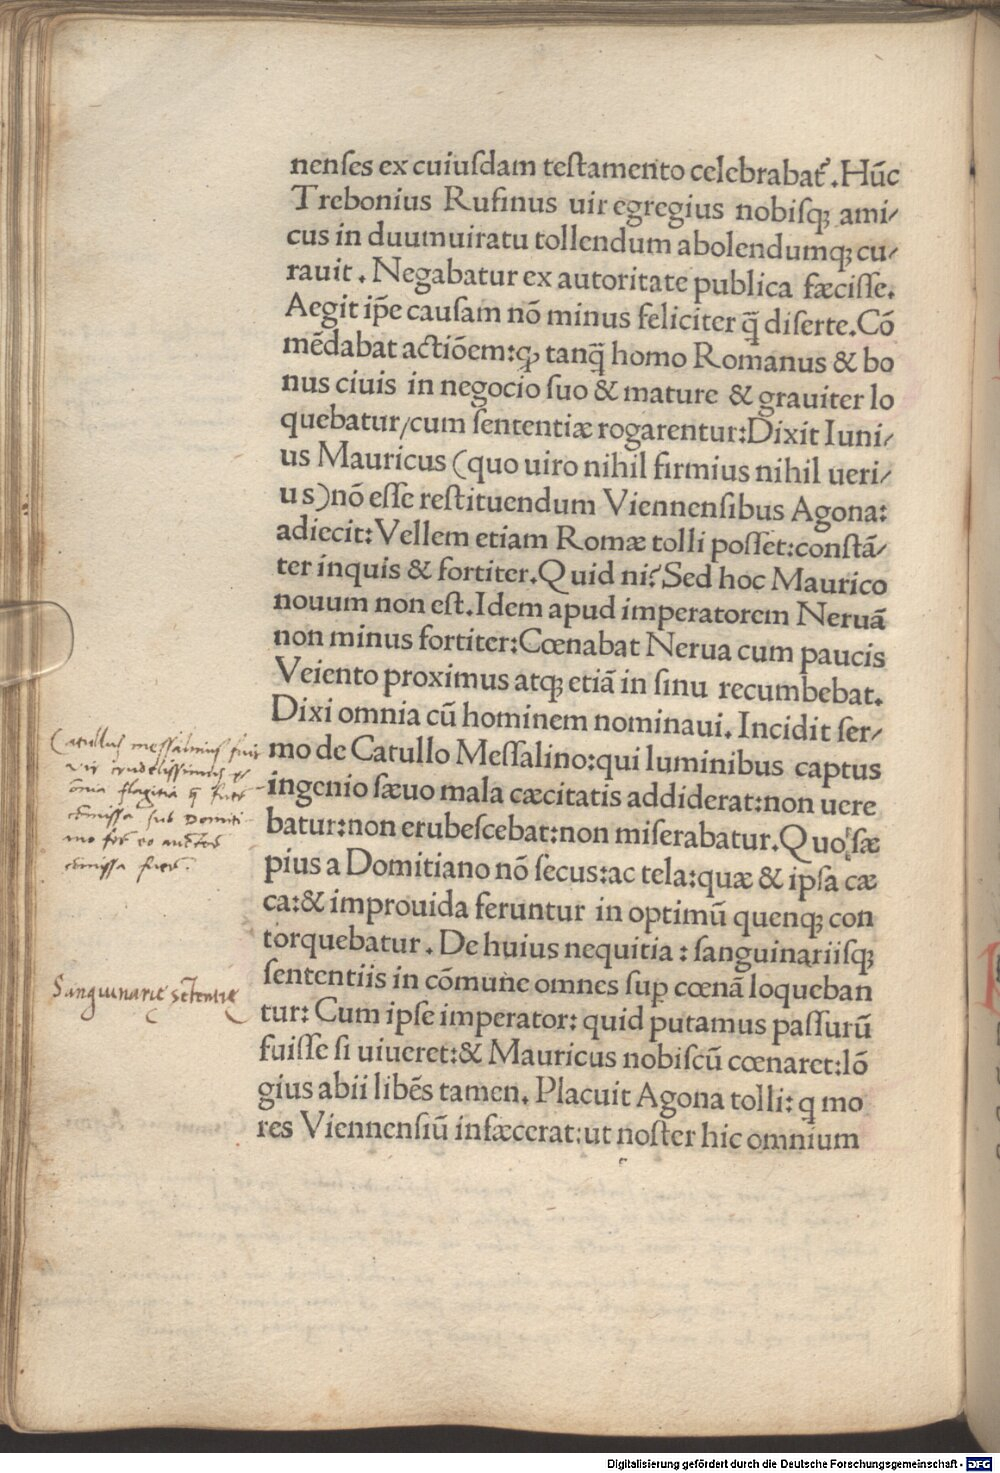 nenſes ex cuiuſdam teſtamento celebrabat̉. Hūc
Trebonius Rufinus uir egregius nobiſqꝫ ami/
cus in duumuiratu tollendum abolendumqꝫ cu/
rauit. Negabatur ex autoritate publica fæciſſe.
Aegit ip̄e cauſam nō minus feliciter q̄ diſerte. Cō
mēdabat actiōem: ꝙ tanq̄ homo Romanus & bo
nus ciuis in negocio ſuo & mature & grauiter lo
quebatur/cum ſententiæ rogarentur: Dixit Iuni/
us Mauricus (quo uiro nihil firmius nihil ueri/
us) nō eſſe reſtituendum Viennenſibus Agona:
adiecit: Vellem etiam Romæ tolli poſſet: conſtā/
ter inquis & fortiter. Quid ni? Sed hoc Maurico
nouum non eſt. Idem apud imperatorem Neruā
non minus fortiter: Cœnabat Nerua cum paucis
Veiento proximus atqꝫ etiā in ſinu recumbebat.
Dixi omnia cū hominem nominaui. Incidit ſer/
mo de Catullo Meſſalino: qui luminibus captus
ingenio ſæuo mala cæcitatis addiderat: non uere
batur: non erubeſcebat: non miſerabatur. Quo ſæ
pius a Domitiano nō ſecus: ac tela: quæ & ipſa cæ
ca: & improuida feruntur in optimū quenqꝫ con
torquebatur. De huius nequitia: ſanguinariiſqꝫ
ſententiis in cōmune omnes ſuꝑ cœnā loqueban
tur: Cum ipſe imperator: quid putamus paſſurū
fuiſſe ſi uiueret: & Mauricus nobiſcū cœnaret: lō
gius abii libēs tamen. Placuit Agona tolli: q mo
res Viennenſiū infæcerat: ut noſter hic omnium
Catullus meſſalinus fuit
vir crudeliſſimus
omīa flagitia q̄
cōmiſſa ſub Domiti
ano
cōmiſſa
Sanguinarię ſētentię
Digitalisierung gefördert durch die Deutsche Forschungsgemeinschaft - DFG